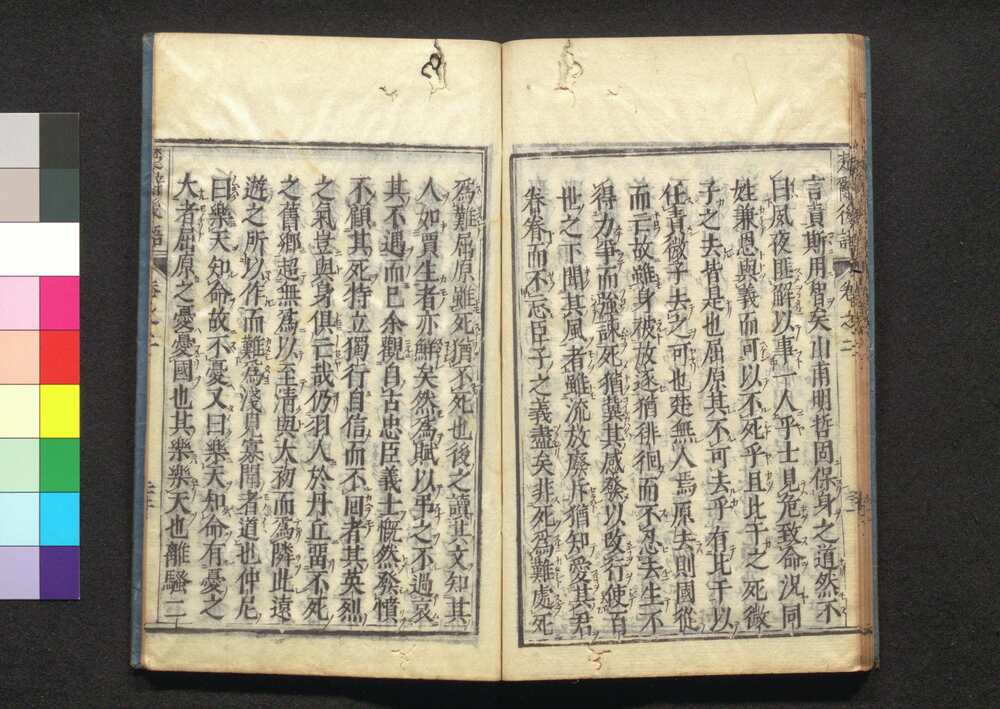 言貴斯用智矣山甫明哲固保身之道然不
曰夙夜匪解以事一人乎士見危致命況同
姓兼恩與義而可以不死乎且比干之死微
子之去皆是也屈原其不可去乎有比干以
任責微子去之可也楚無人焉原去則國從
而亡故雖身被放逐猶徘徊而不忍去生不
得力爭而強諫死猶冀其感發以改行使百
世之下聞其風者雖流放廢斥猶知愛其君
眷眷而不忘臣子之義盡矣非死為難處死
為難屈原雖死猶不死也後之讀其文知其
人如賈生者亦鮮矣然為賦以弔之不過哀
其不遇而已余觀自古忠臣義士慨然發憤
不顧其死特立獨行自信而不回者其英烈
之氣豈與身俱亡哉仍羽人於丹丘留不死
之舊鄉超無為以至清與太初而為隣此遠
遊之所以作而難為淺見寡聞者道也仲尼
曰樂天知命故不憂又曰樂天知命有憂之
大者屈原之憂憂國也其樂樂天也離騷二